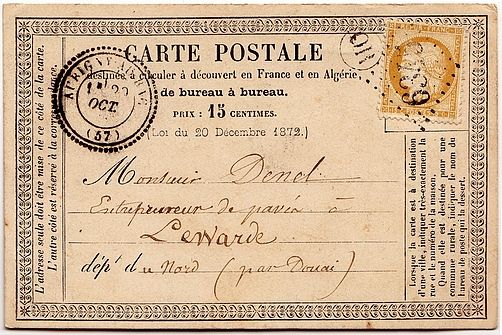 CARTE POSTALE
destinée à circuler à découvert en France et en Algérie,
de bureau à bureau.
PRIX : 15 CENTIMES.
(Loi du 20 Décembre 1872.)
AUBIGNY-AU-BAC
OCT.
(57)
OR
Monsieur Denel
Entrepreneur de pavés à
Lewarde
dépt du Nord (par Douai)
L'adresse seule doit être mise de ce côté de la carte.
L'autre côté est réservé à la correspondance.
Lorsque la carte est à destination
d'une ville, indiquer très-exactement la
rue et le numéro de la maison.
Quand elle est destinée pour une
commune rurale, indiquer le nom du
bureau de poste qui la dessert.